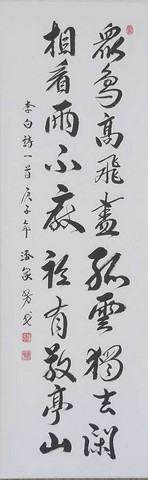 眾鳥高飛盡孤雲獨去閑
相看兩不厭祇有敬亭山
李白詩一首庚子年潘家